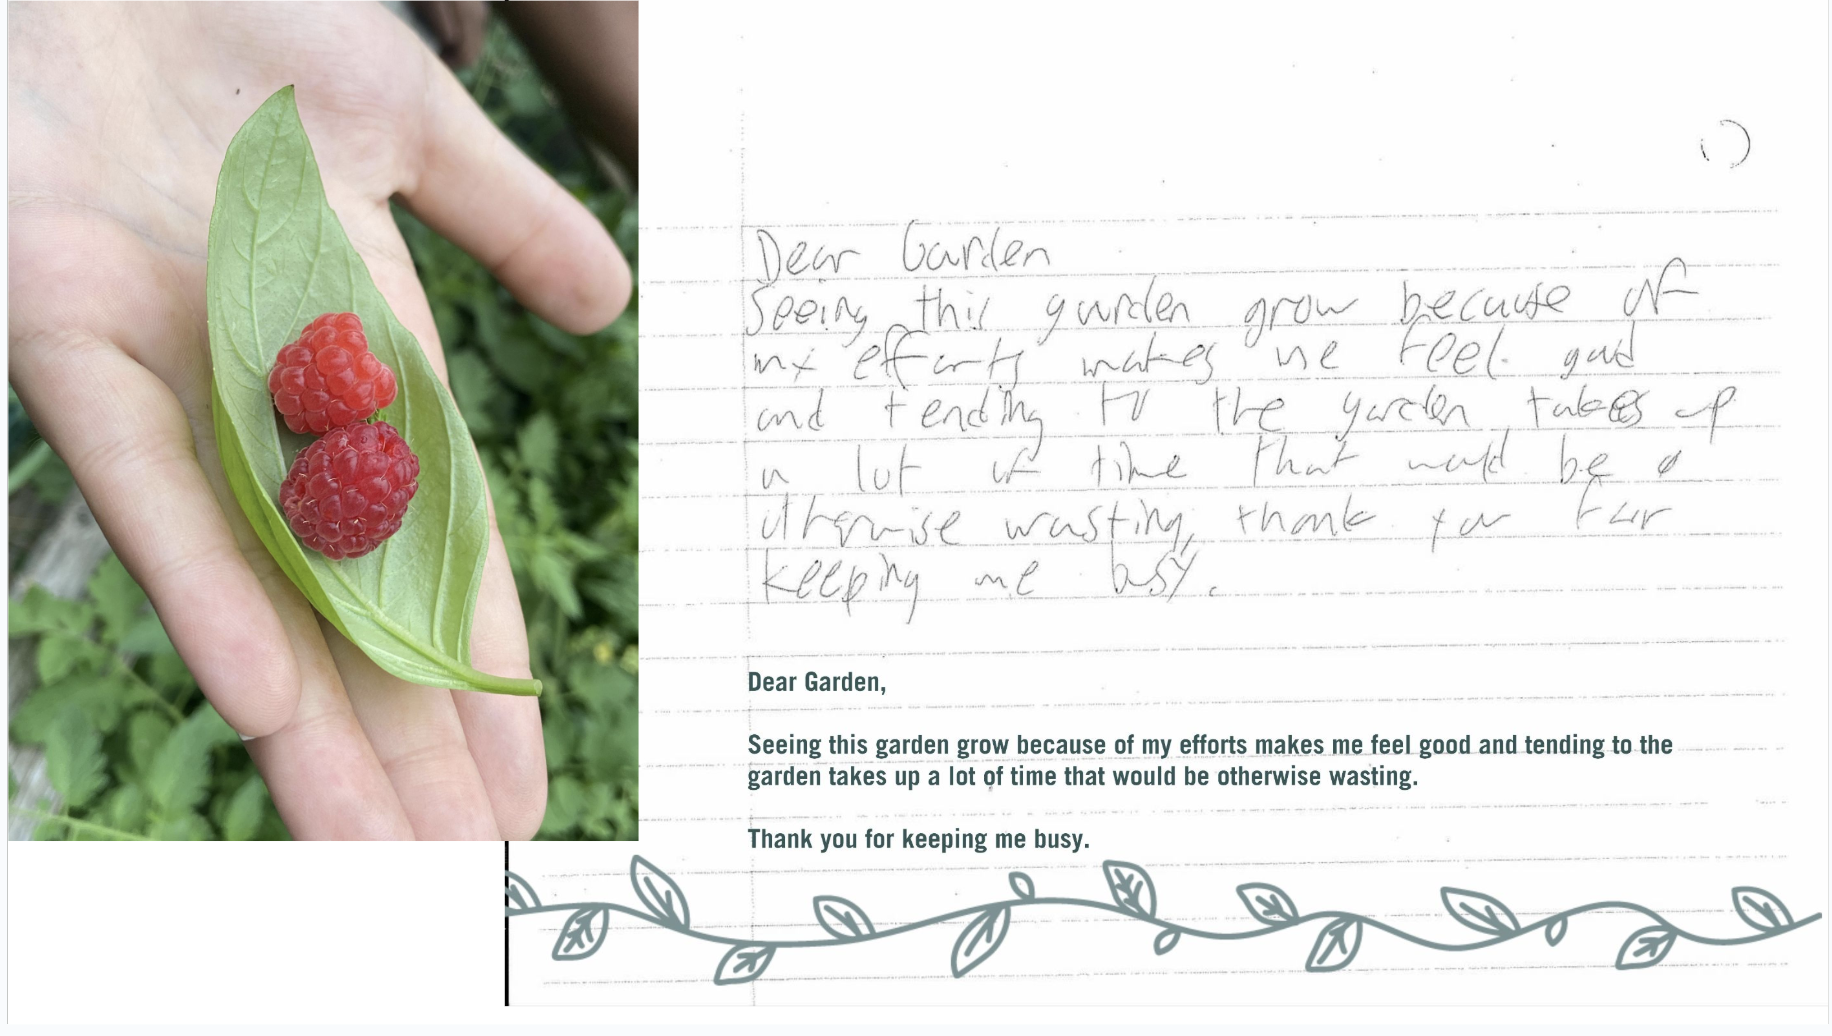 Dear Garden
Seeing this garden grow because of
my efforts makes me feel good
and tending to the garden takes up
a lot of time that would be
otherwise wasting, thank you for
keeping me busy.
Dear Garden,
Seeing this garden grow because of my efforts makes me feel good and tending to the
garden takes up a lot of time that would be otherwise wasting.
Thank you for keeping me busy.